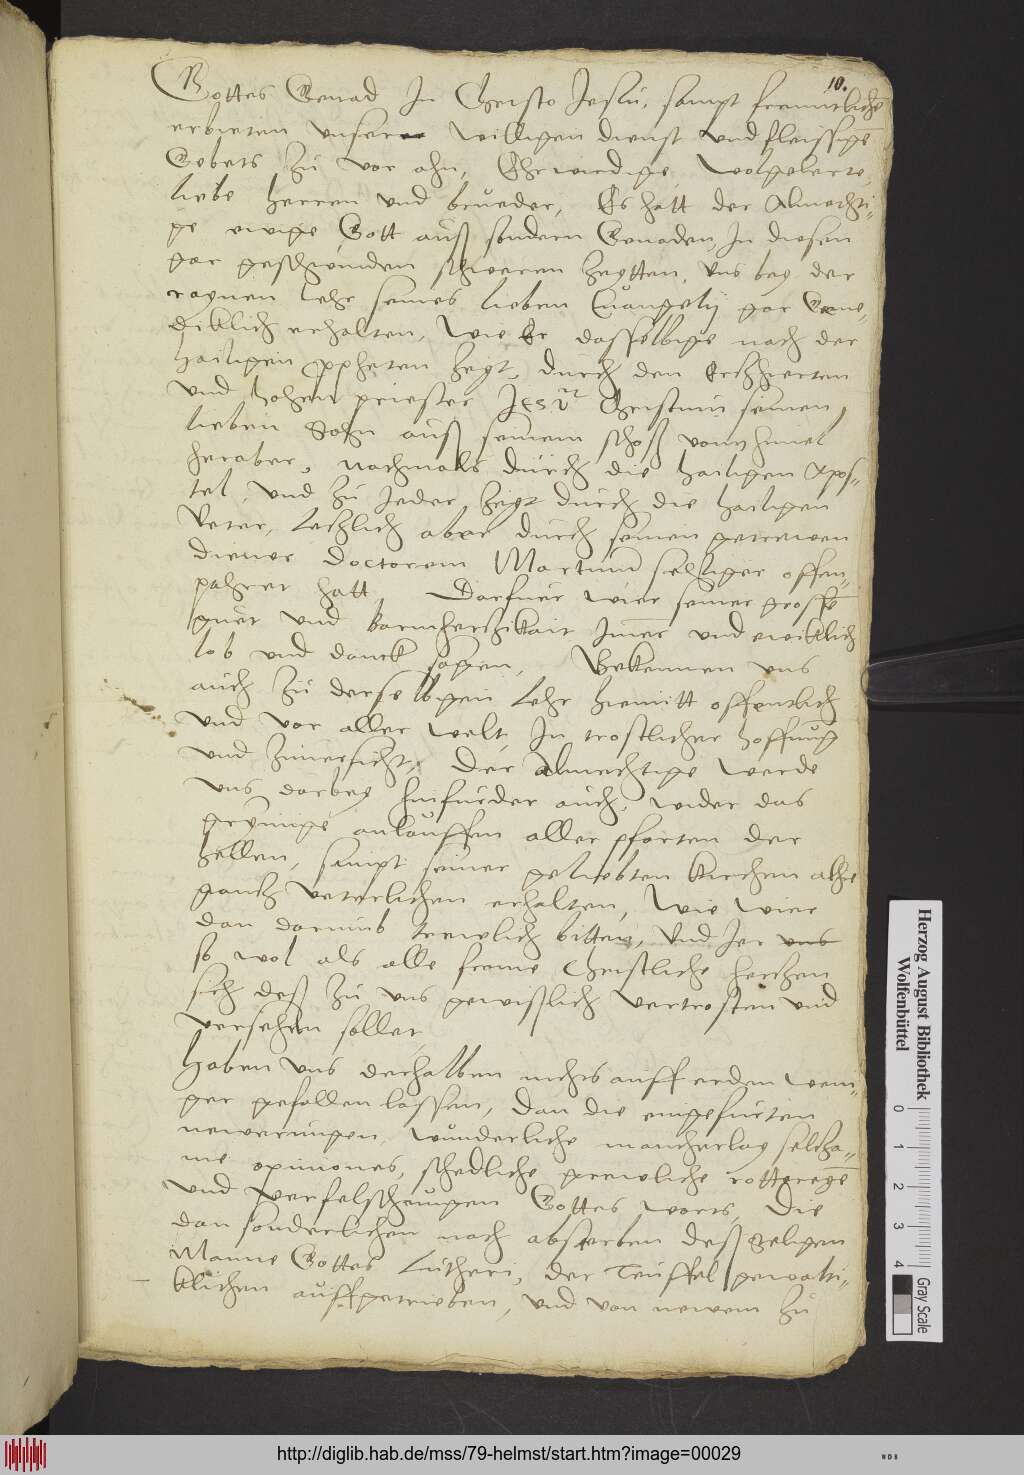 10.
Gottes Genad In Christo Jesu, sampt freuntliche
erbieten unserer willigen dienst und fleissige
Gebets zu vor ahn, Ehrwirdige, wolgelerte,
liebe herren und brueder, Es hatt der Almechti-
ge ewige Gott auß sondern Genaden, In diesen
gar geschwinden schweren Zeytten, uns bey der
raynen lehr seines lieben Evangelij gar Gene-
diklich erhalten, wie Er dasselbige nach der
hailigen ppheten Zeyt, durch den Ertzhierten
und hohen priester Jesum Christum seinen
lieben Sohn auß seinem schoß vom himel
heraber, nachmals durch die hailigen Apos-
tel, und zu Jeder Zeyt durch die hailigen
Veter, Letzlich aber durch seinen getrewen
diener Doctorem Martinum seliger offen-
pahret hatt, Darfuer wier seiner grosse
guet und Barmhertzikait Imer und ewiklich
lob und danck sagen, Bekennen uns
auch zu derselbigen Lehr hiemitt offentlich
und vor aller welt, In trostlicher hoffnug
und Zuversicht, Der Almechtige werde
uns darbey hinfurder auch, wider das
grymige anlauffen aller pforten der
hellen, sampt seiner geliebten kirchen alhie
gantz veterlichen erhalten, wie wier
dan darumb trewlich bitten, Und Jer uns
so wol als alle frume Christliche hertzen
sich deß zu uns gewißlich vertrosten und
versehen sollen
Haben uns derhalben nichts auff erden weni-
ger gefallen lassen, dan die eingefurten
newerungen, wunderliche mancherlay seltza-
me opiniones, schedliche grewliche rottereye
und verfelschungen Gottes worts, Die
dan sonderlichen nach absterben deß Seligen
Manne Gottes Lutheri, der Teuffel gewalti-
klichen auffgetrieben, und von newem zu
Herzog August Bibliothek
Wolfenbüttel
0 1 2 3 4
Gray Scale
http://diglib.hab.de/mss/79-helmst/start.htm?image=00029
WDB